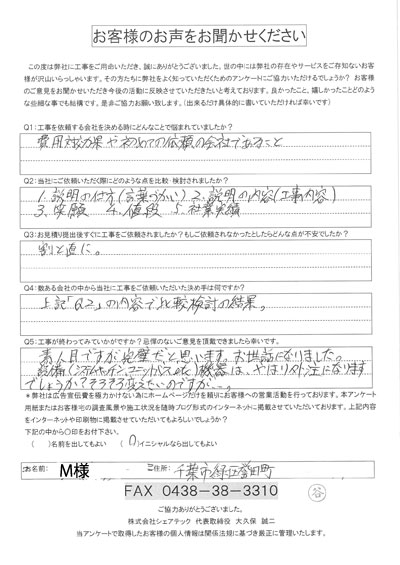 お客様のお声をお聞かせください
この度は弊社に工事をご用命いただき、誠にありがとうございました。世の中には弊社の存在やサービスをご存知ないお客
様が沢山いらっしゃいます。その方たちに弊社をよく知っていただくためのアンケートにご協力いただけるでしょうか？ お客様
のご意見をお聞かせいただき今後の活動に反映させていただきたいと考えております。良かったこと、嬉しかったことどのよう
な些細な事でも結構です。是非ご協力お願い致します。（出来るだけ具体的に書いていただければ幸いです）
Q1:工事を依頼する会社を決める時にどんなことで悩まれていましたか？
費用対効果や初めての依頼の会社であること
Q2:当社にご依頼いただく際にどのような点を比較・検討されましたか？
1.説明の仕方(言葉づかい) 2.説明の内容(工事内容)
3.笑顔 4.値段 5.社業実績
Q3:お見積り提出後すぐに工事をご依頼されましたか？もしご依頼されなかったとしたらどんな点が不安でしたか？
割と直に。
Q4:数ある会社の中から当社に工事をご依頼いただいた決め手は何ですか？
上記「Q2」の内容で比較検討の結果。
Q5:工事が終わってみていかがですか？忌憚のないご意見を頂戴できましたら幸いです。
素人目ですが完璧だと思います。お世話になりました。
設備(システムキッチン、ユニットバスetc)機器は、やはり外注になります
でしょうか？そろそろ変えたいのですが…。
＊弊社は広告宣伝費を極力かけない為にホームページだけを頼りにお客様への営業活動を行っております。本アンケート
用紙またはお客様宅の調査風景や施工状況を随時ブログ形式のインターネットに掲載させていただいております。上記内容
をインターネットや印刷物に掲載させていただいてもよろしいでしょうか？
下記の中から〇印をお付下さい。
（ ）名前を出してもよい （〇）イニシャルなら出してもよい
お名前： M様 ご住所： 千葉市緑区誉田町
FAX 0438-38-3310
ご協力ありがとうございました。
株式会社シェアテック 代表取締役 大久保 誠二
当アンケートで取得したお客様の個人情報は関係法規に基づき厳正に管理いたします。